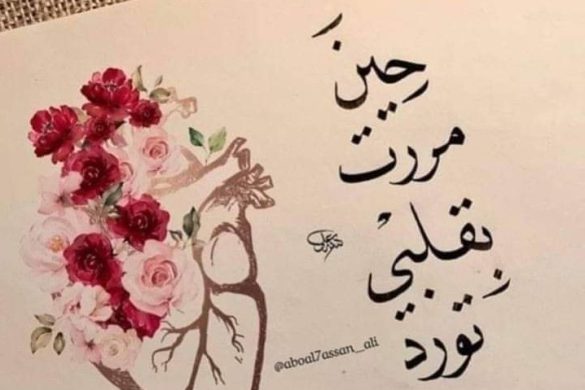 حِينَ
مررت
بِقلبيْ
تورد
@aboal7assan_ali